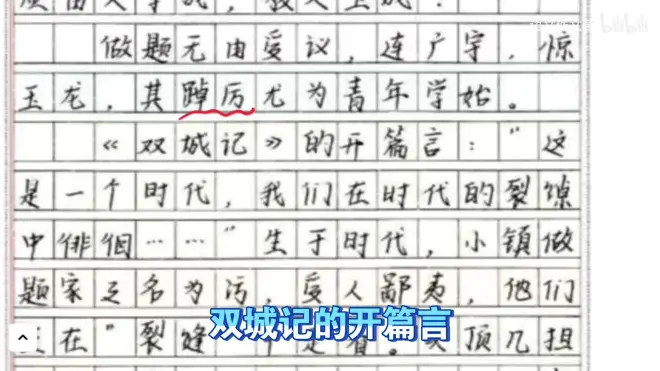 做题无由受议，连广宇，惊
玉龙，其踔厉尤为青年学始。
《双城记》的开篇言："这
是一个时代，我们在时代的裂隙
中徘徊……"生于时代，小镇做
题家之名为污，受人鄙夷，他们
在"裂缝
双城记的开篇言
顶几担
bilibili